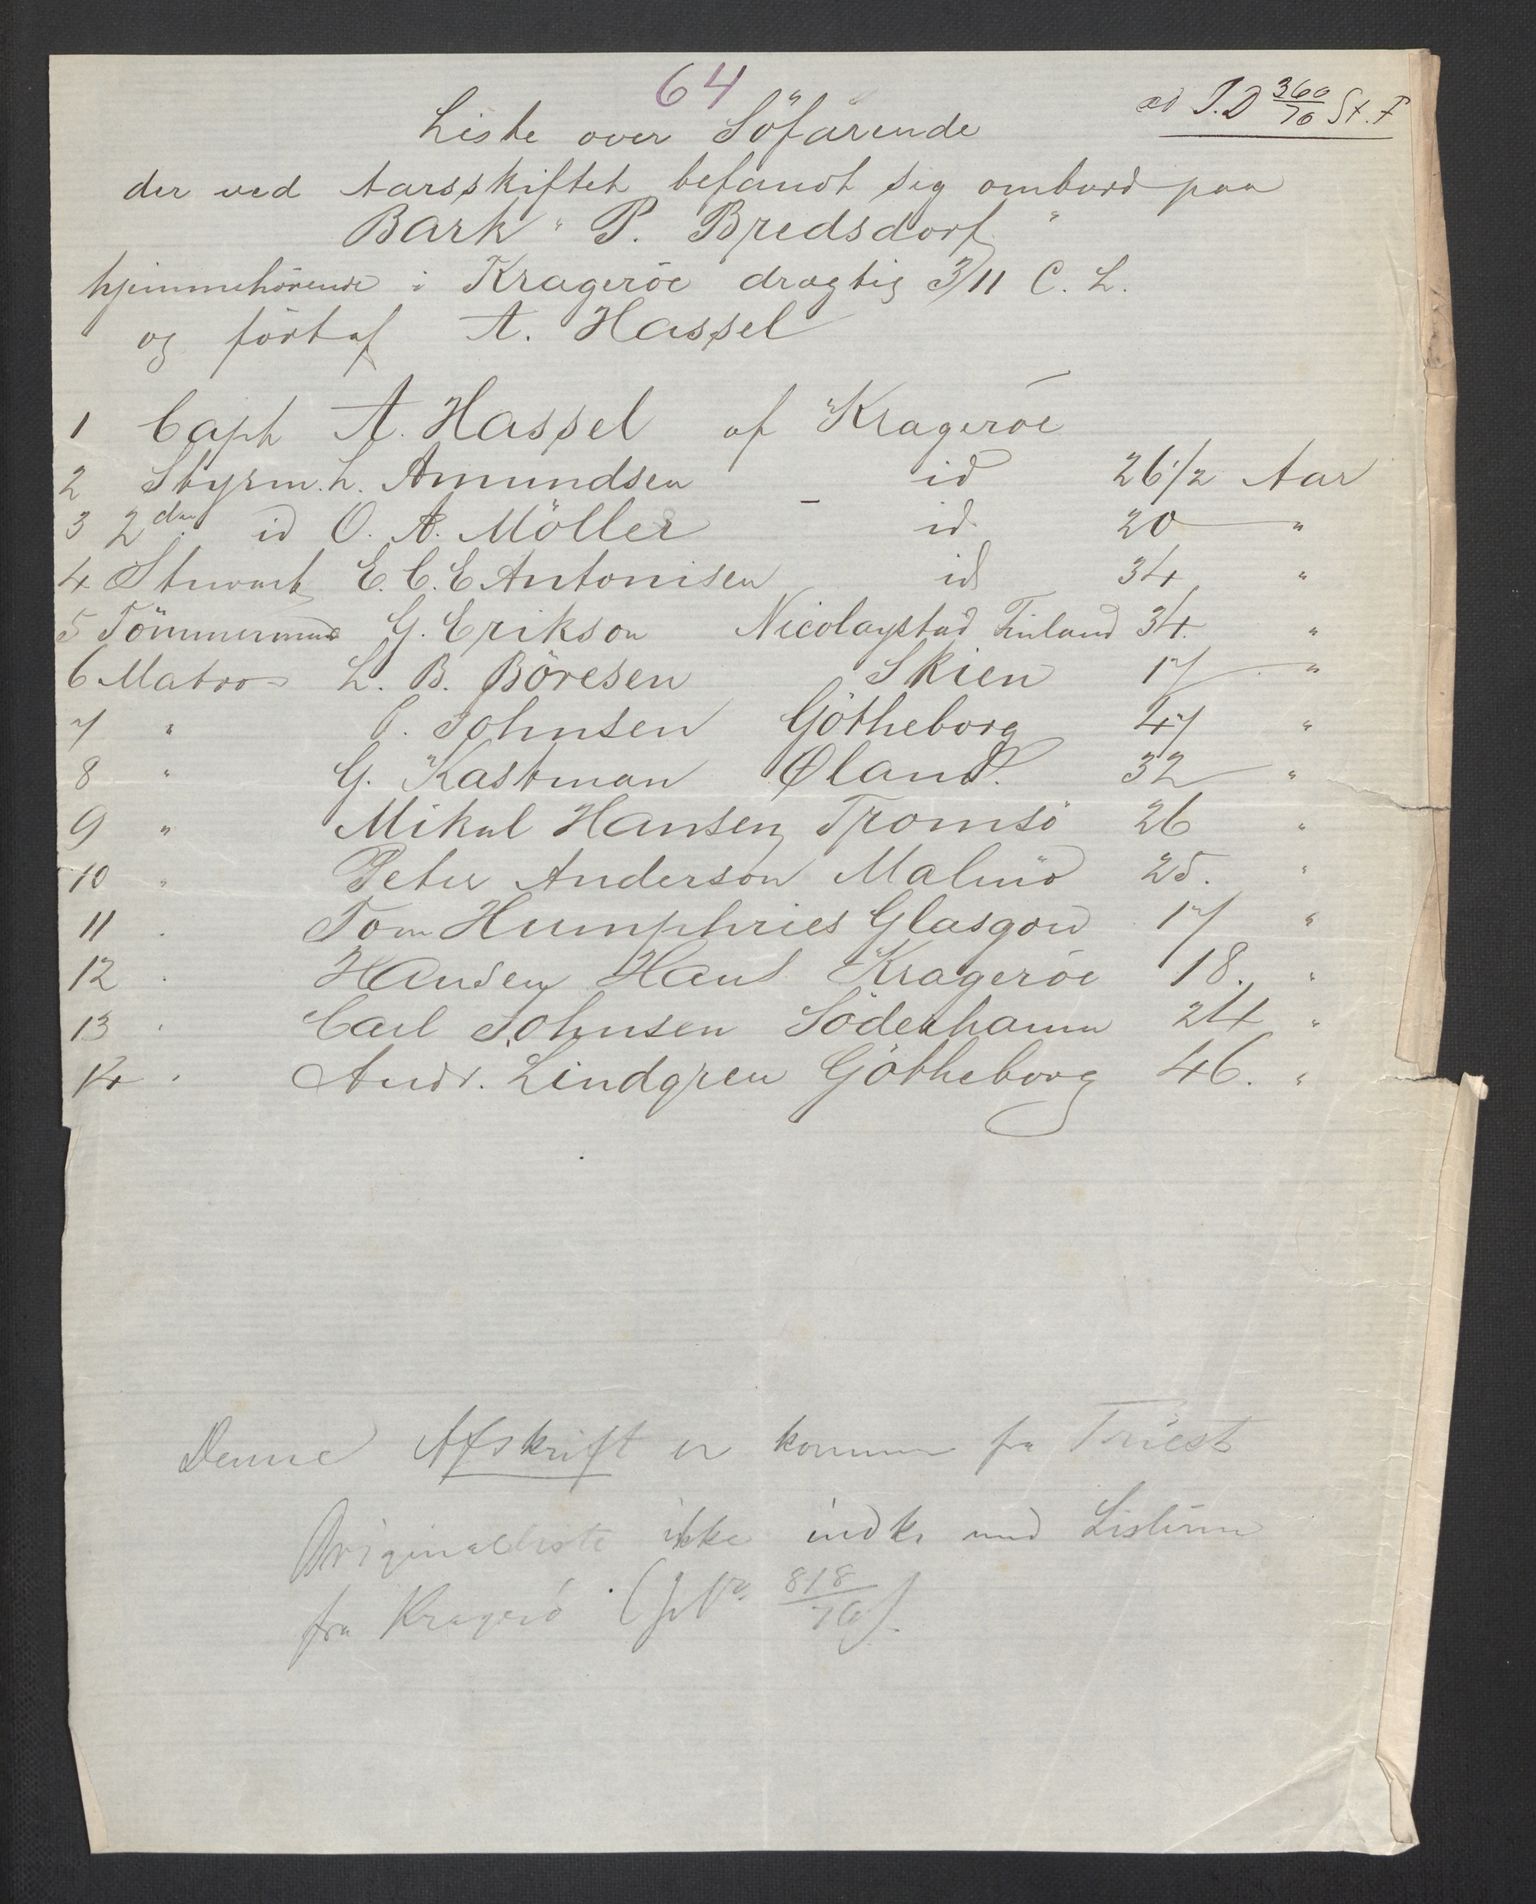 64
ad J.D 360/70 St. F
Liste over Söfarende
der ved Aarsskiftet befandt sig ombord paa
Bark " P. Bredsdorf "
hjemmehörende i Krageröe drægtig 311 C. L.
og fört af A. Hassel
1 Capt A. Hassel af Krageröe
2 Styrm. L. Amundsen id 26 1/2 Aar
3 2den id O. A. Möller id 20 "
4 Stuvart E. C. E Antonisen id 34 "
5 Tömmermand G. Erikson Nicolaystad Finland 34. "
6 Matros L. B. Böresen Skien 17 "
7 " Johnsen Götheborg 47 "
8 " G. Kastman Øland. 32 "
9 " Mikal Hansen Tromsö 26 "
10 " Peter Anderson Malmö 25. "
11 " Tom Humphries Glasgow 17 "
12 " Hansen Hans Krageröe 18. "
13 " Carl Johnsen Söderhamn 24 "
14 " Andr. Lindgren Götheborg 46. "
Denne Afskrift er kommen fra Triest
Originalliste ikke indk. med Listerne
fra Kragerö (J Nr. 818/70).